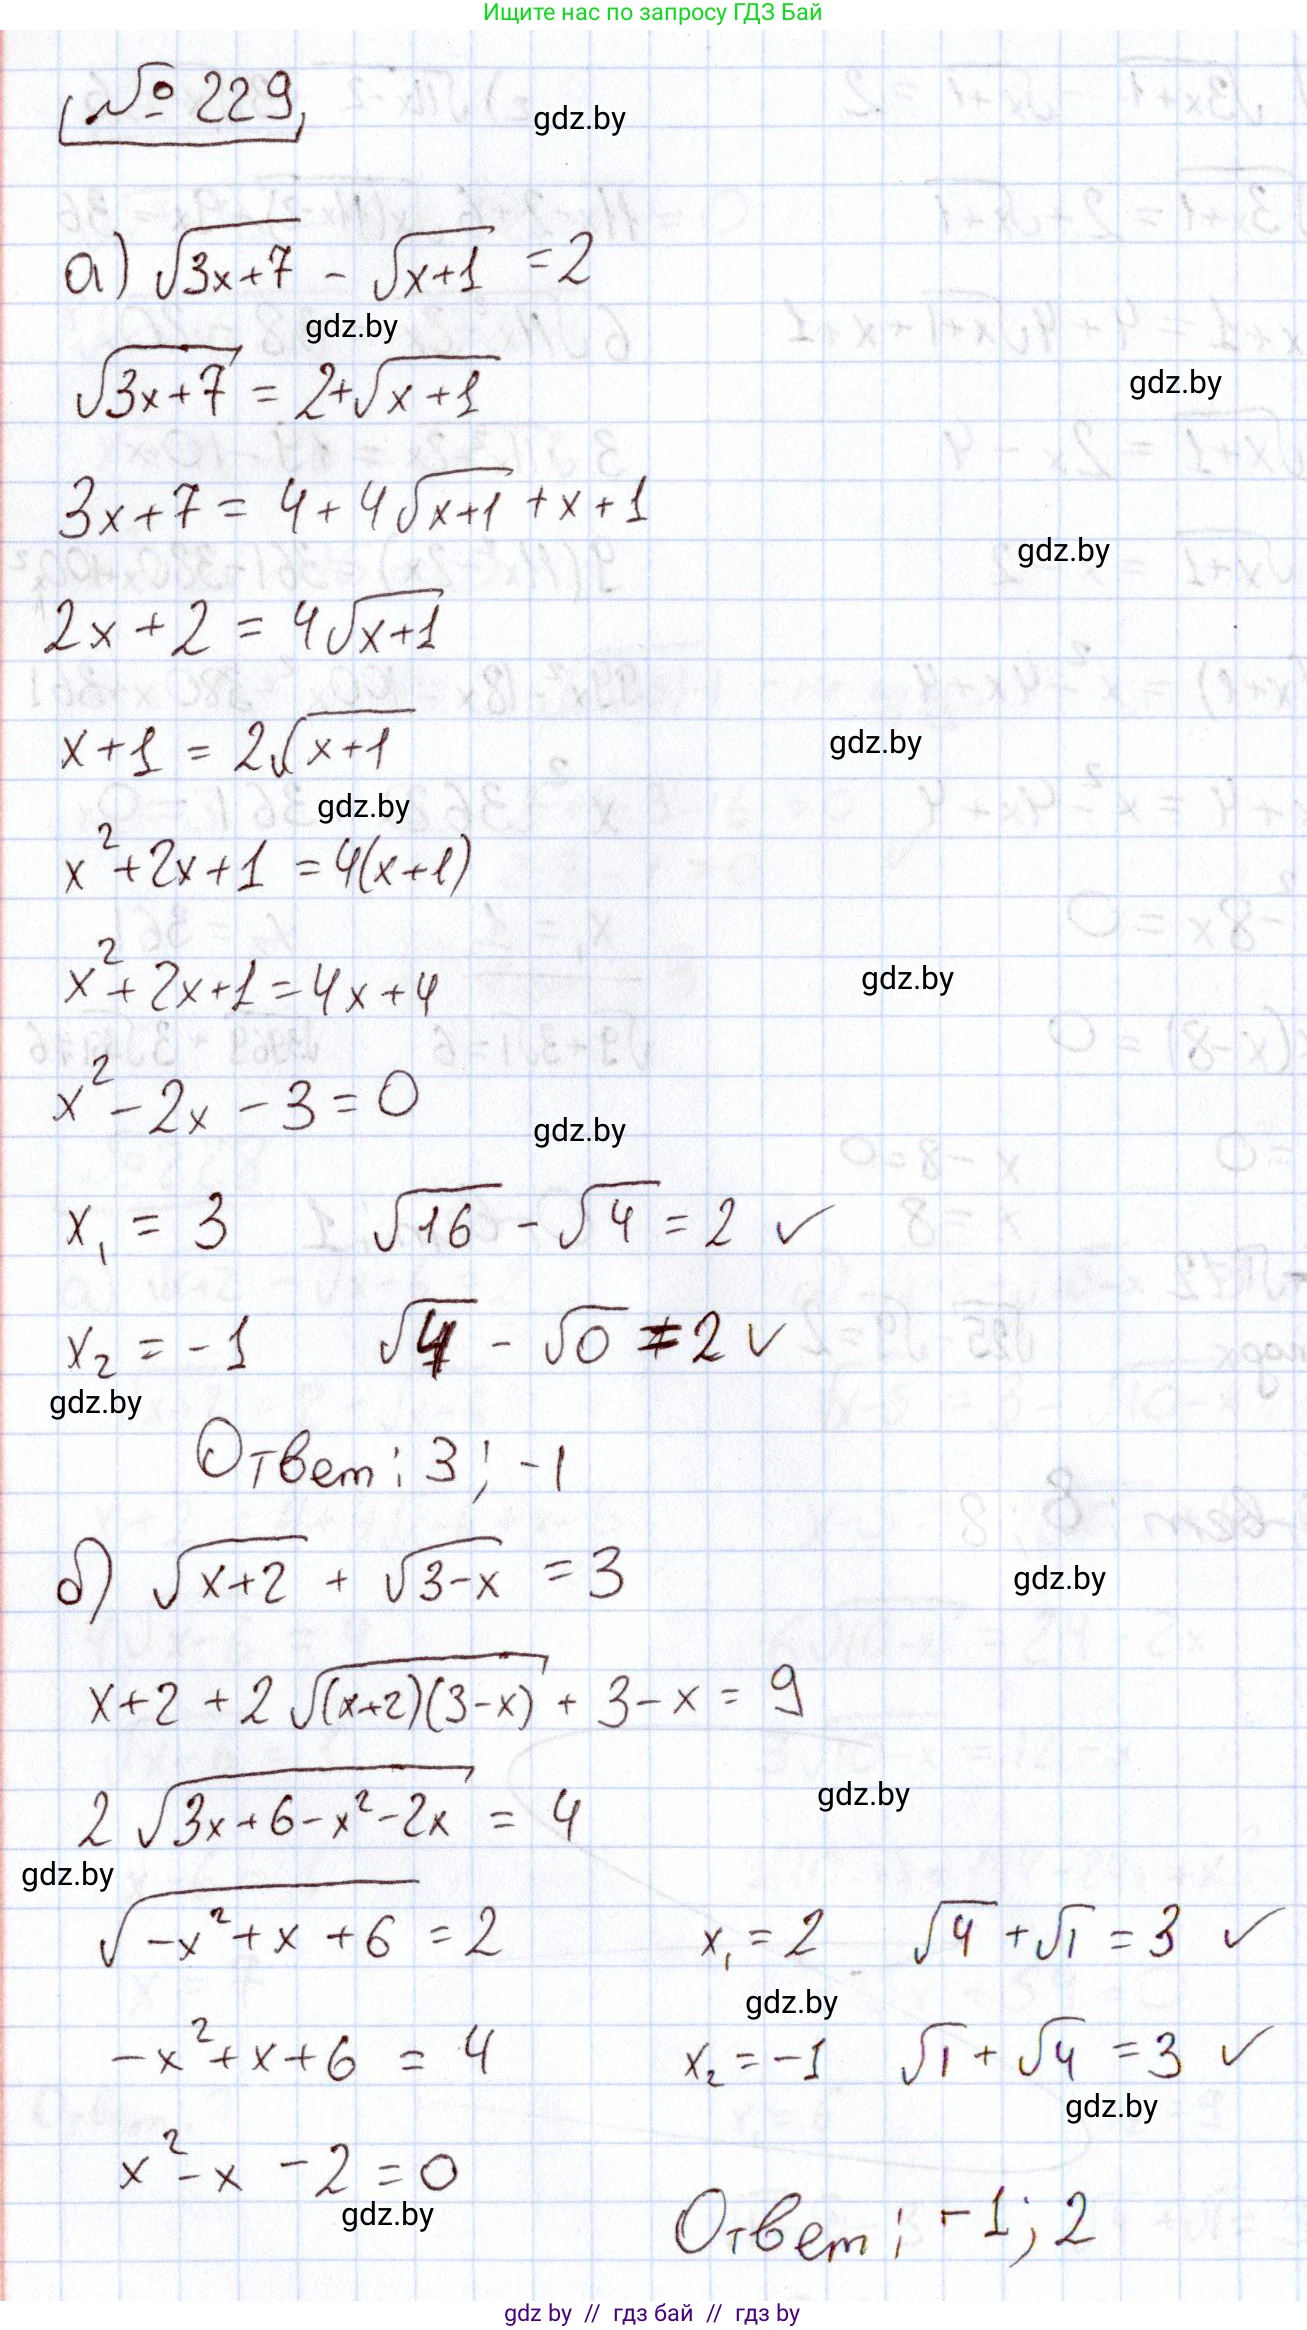 Ищите нас по запросу ГДЗ Бай
№ 229
gdz.by
а) √(3x+7) - √(x+1) = 2
gdz.by
√(3x+7) = 2+√(x+1)
gdz.by
3x+7 = 4+4√(x+1) + x+1
gdz.by
2x+2 = 4√(x+1)
x+1 = 2√(x+1)
gdz.by
gdz.by
x²+2x+1 = 4(x+1)
x²+2x+1 = 4x+4
gdz.by
x²-2x-3=0
gdz.by
x₁ = 3 √16 - √4 = 2 ✓
x₂ = -1 √4 - √0 = 2 ✓
gdz.by
Ответ: 3; -1
б) √(x+2) + √(3-x) = 3
gdz.by
x+2 + 2√((x+2)(3-x)) + 3-x = 9
gdz.by
2√(3x+6-x²-2x) = 4
gdz.by
√(-x²+x+6) = 2 x₁ = 2 √4 + √1 = 3 ✓
gdz.by
-x²+x+6 = 4 x₂ = -1 √1 + √4 = 3 ✓
gdz.by
x²-x-2=0
gdz.by
Ответ: -1; 2
gdz by // гдз бай // гдз by